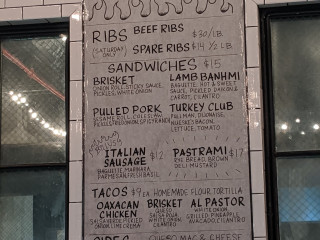 RIBS BEEF RIBS $30/LB
(SATURDAY ONLY) SPARE RIBS $14 1/2 LB
SANDWICHES $15
BRISKET
ONION ROLL, STICKY SAUCE,
PICKLES, WHITE ONION
LAMB BANHMI
BAGUETTE, HOT & SWEET
SAUCE, PICKLED DAIKON &
CARROT, CILANTRO
PULLED PORK
SESAME ROLL, COLESLAW,
TURKEY CLUB
PULLMAN, DUONAISE,
NUESKE'S BACON,
LETTUCE, TOMATO
ITALIAN
SAUSAGE $12
BAGUETTE, MARINARA,
PARMESAN, FRESH BASIL
PASTRAMI $17
RYE BREAD, BROWN
DELI MUSTARD
TACOS $9 EA. HOMEMADE FLOUR TORTILLA
OAXACAN
CHICKEN
SALSA VERDE, PICKLED
ONION, LIME CREMA
BRISKET
SALSA ROJA,
WHITE ONION,
CILANTRO
AL PASTOR
WHITE ONION,
GRILLED PINEAPPLE,
AVOCADO, CILANTRO
SIDES QUESO MAC & CHEESE